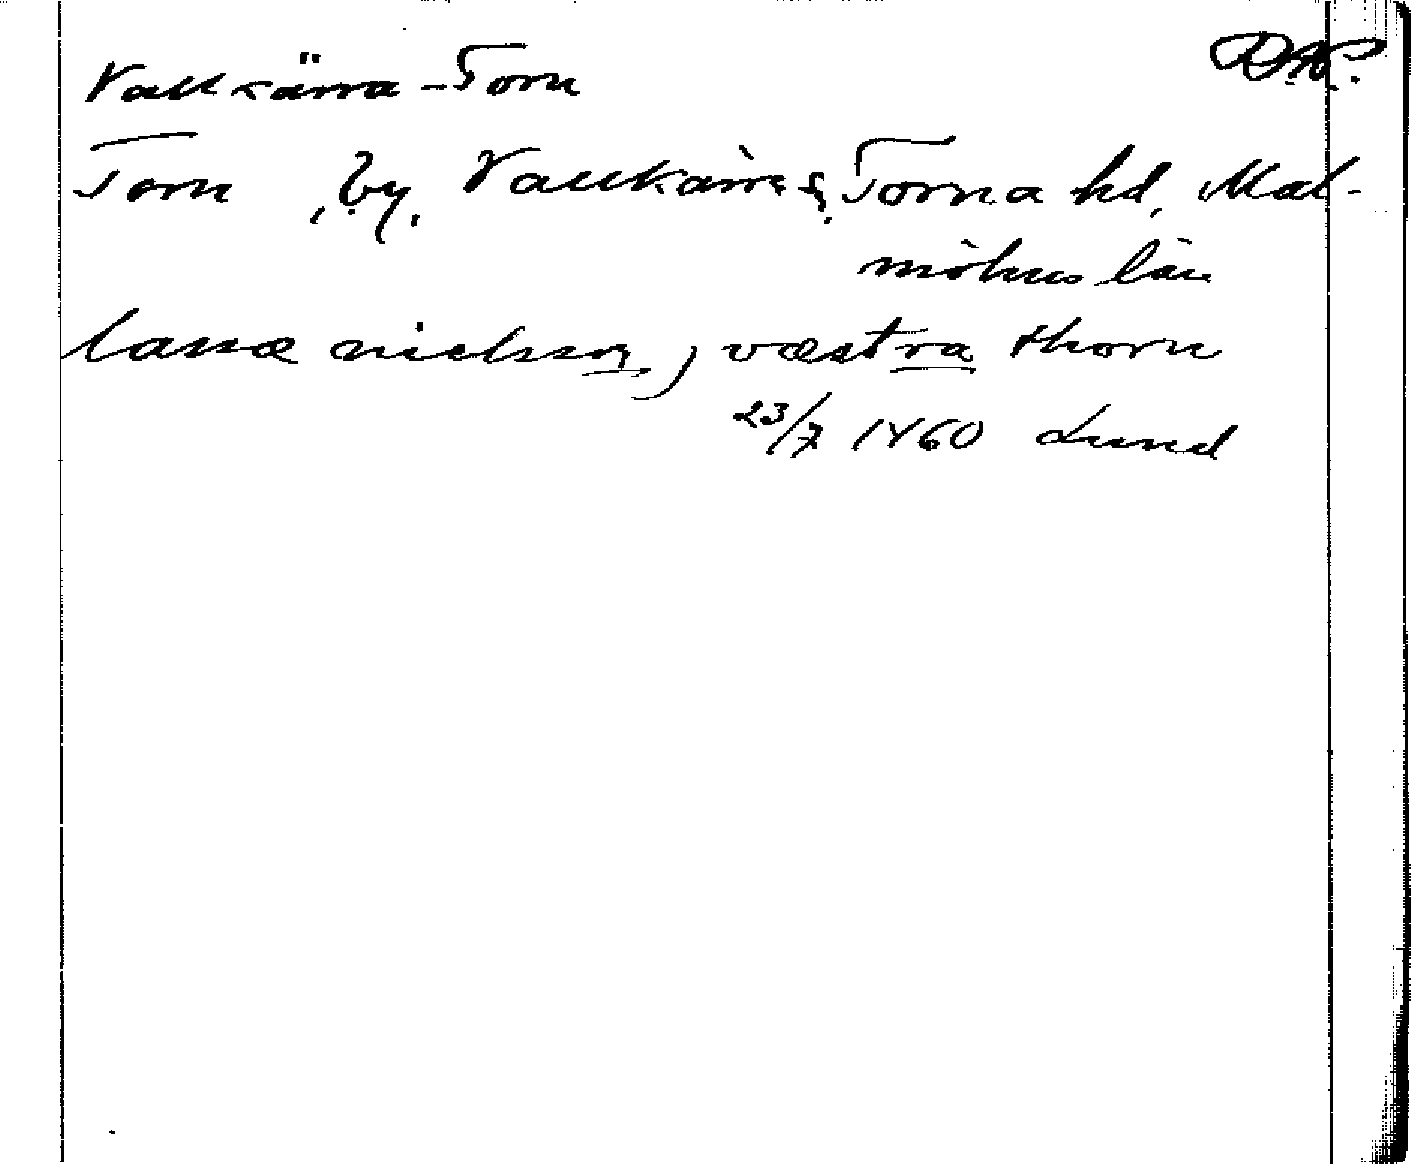 Vallkärra-Torn
Torn, by, Vallkärra s, Torna hd, Mal-
möhus län
lassæ nielsson, j væstra thorn
23/7 1460 Lund